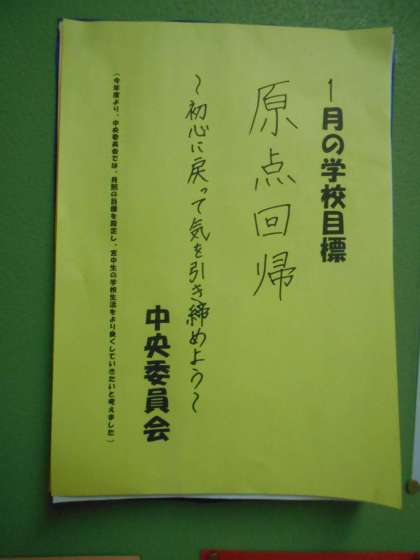 1月の学校目標
原点回帰
~初心に戻って気を引き締めよう~
中央委員会
(今年度より、中央委員会では、月別の目標を設定し、吉中生の学校生活をより良くしていきたいと考えました)